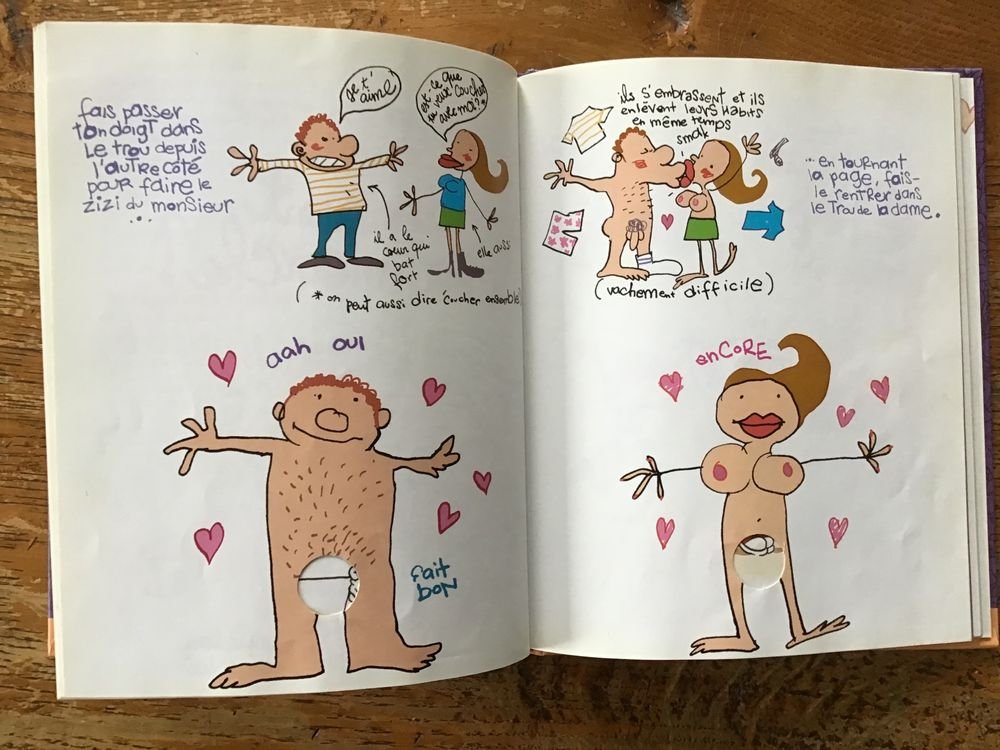 fais passer
ton doigt dans
le trou depuis
l'autre côté
pour faire le
zizi du monsieur
...
je t'
aime
est-ce que
tu veux coucher
avec moi?*
il a le
coeur qui
bat
fort
elle aussi
(* on peut aussi dire coucher ensemble
aah oui
fait
bon
ils s'embrassent et ils
enlèvent leurs habits
en même temps
smak
(vachement difficile)
... en tournant
la page, fais-
le rentrer dans
le trou de la dame.
encore